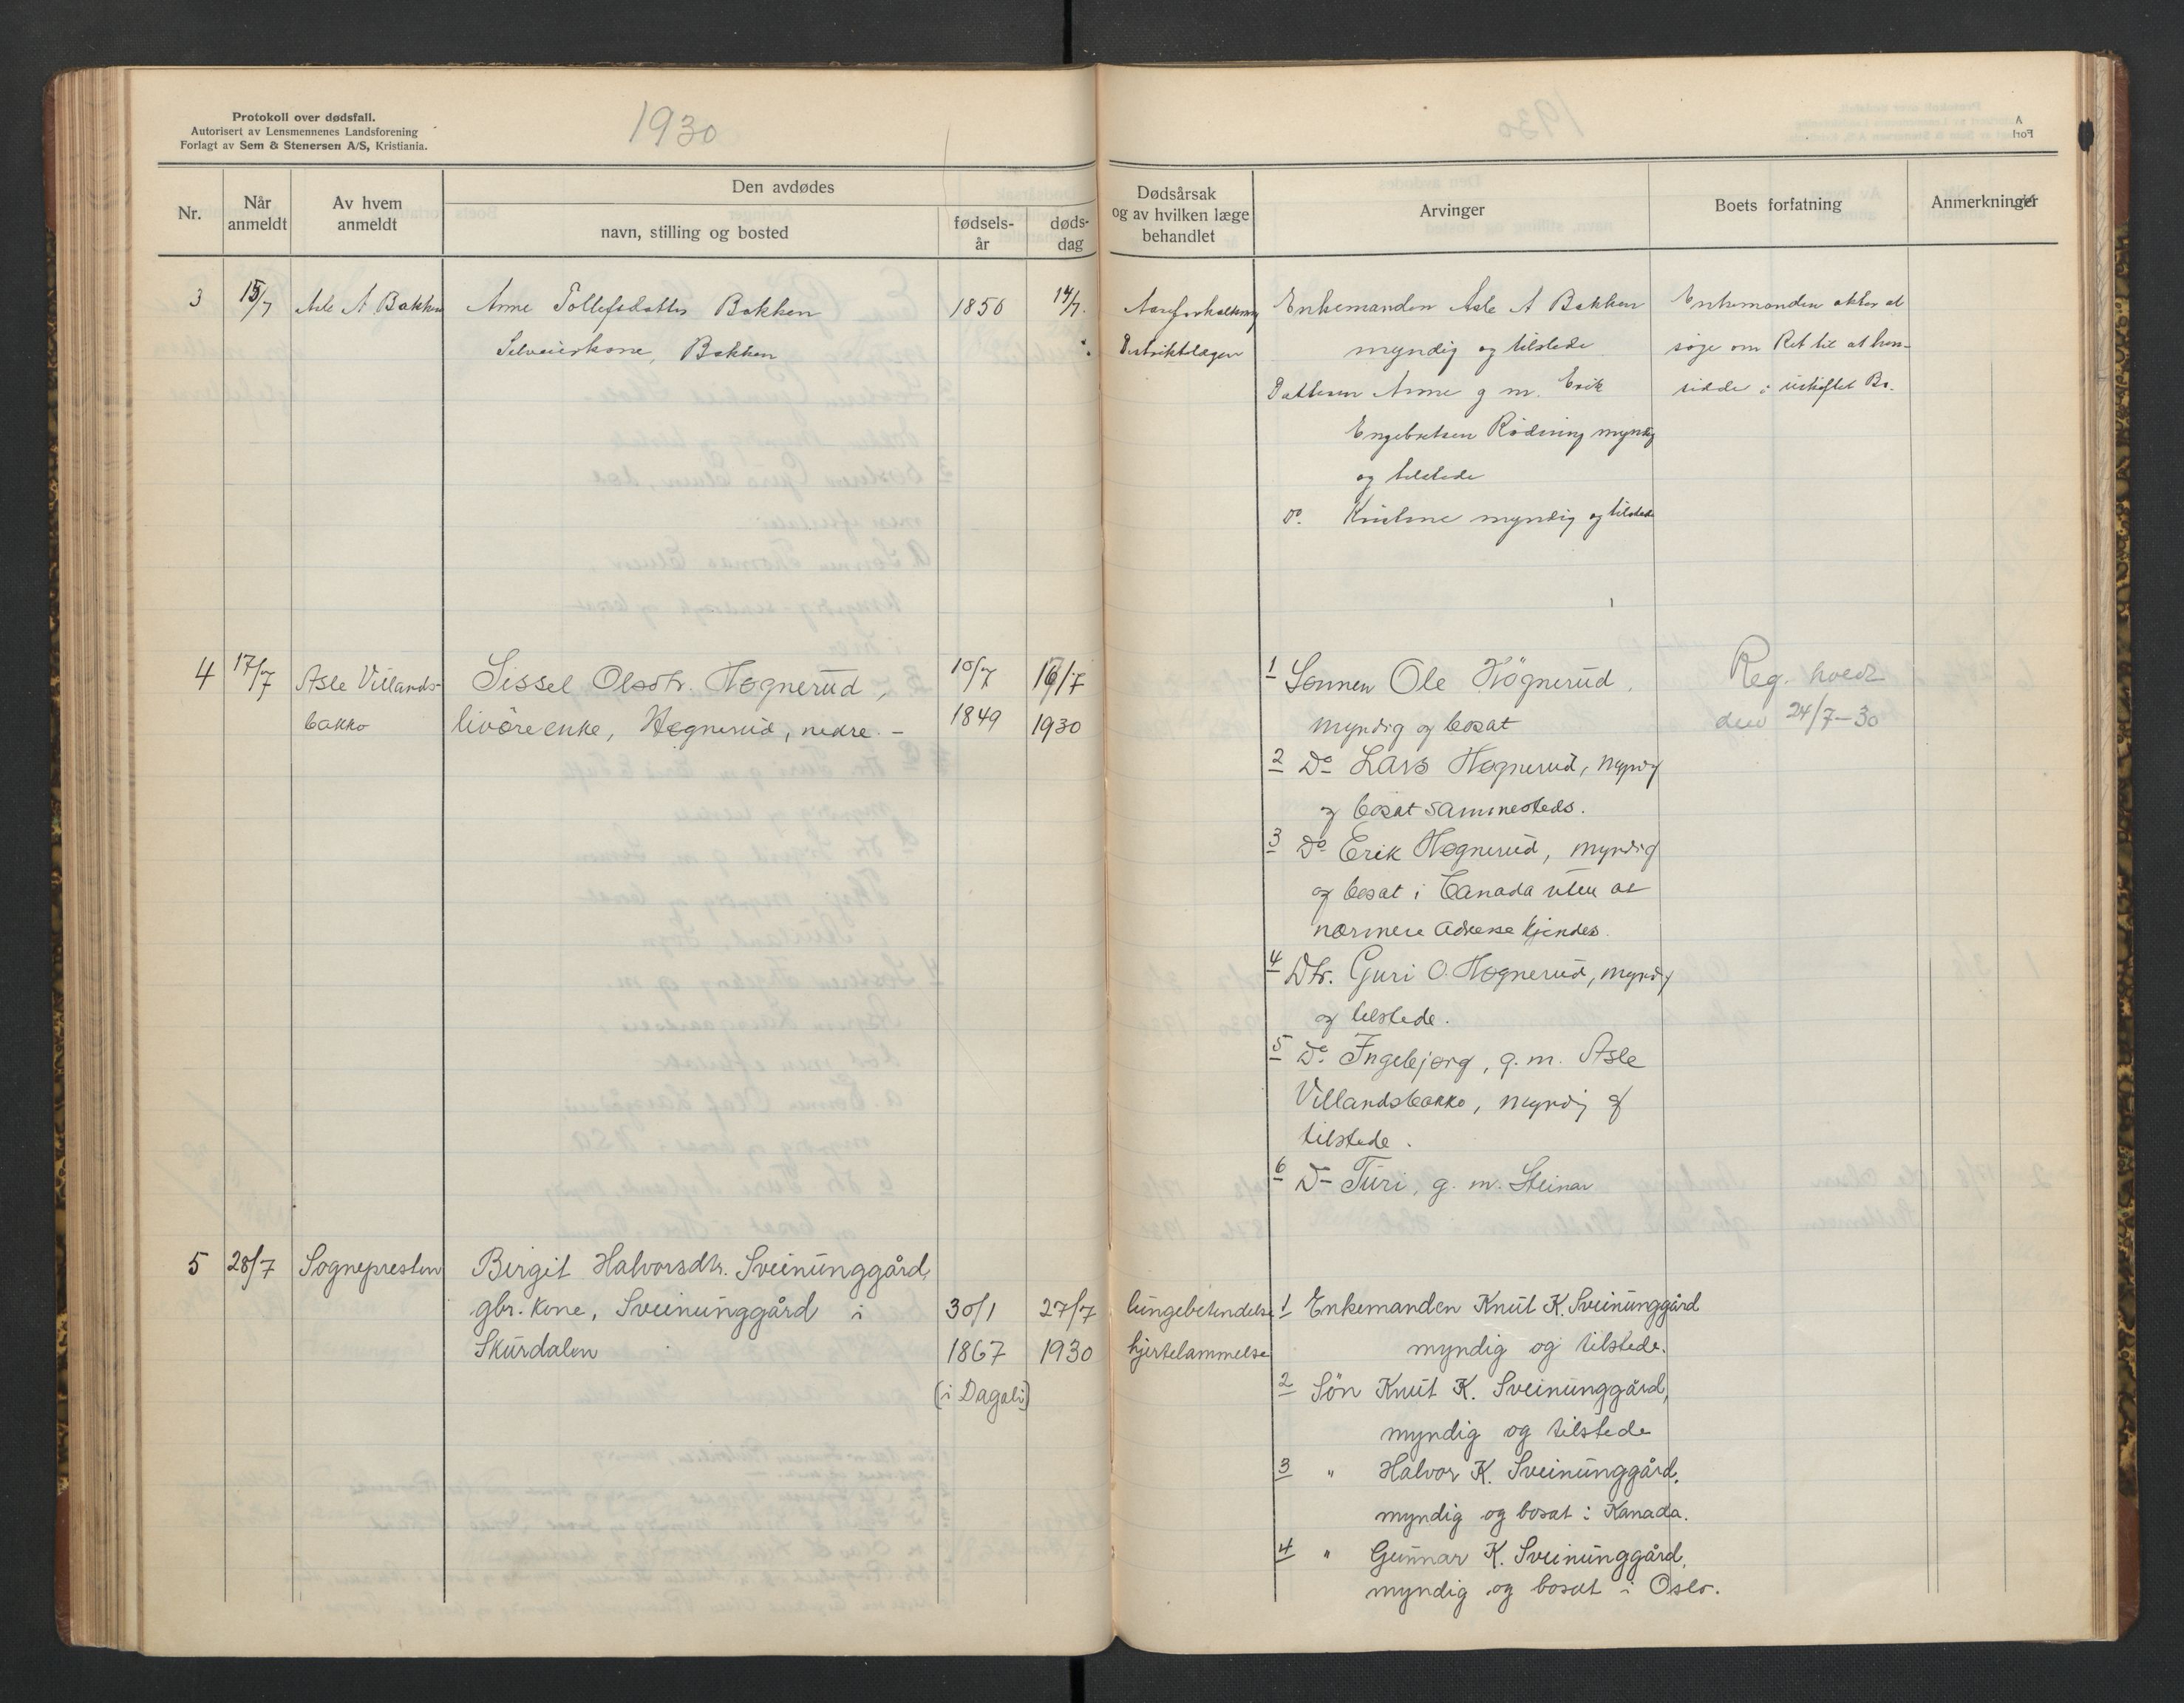 Protokoll over dødsfall.
Autorisert av Lensmennenes Landsforening
Forlagt av Sem & Stenersen A/S, Kristiania.
1930
Nr.
Når anmeldt
Av hvem anmeldt
Den avdødes
navn, stilling og bosted
fødselsår
dødsdag
Dødsårsak
og av hvilken læge
behandlet
Arvinger
Boets forfatning
Anmerkninger
3
15/7
Asle A Bakken
Anne Tollefsdatter Bakken
Selveierkone, Bakken
1850
14/7.
Aareforkalkning
Distriktslægen
Enkemanden Asle A Bakken
myndig og tilstede
Datteren Anne g m. Erik
Engebretsen Rødning myndig
og tilstede
Do. Kristine myndig og tilstede
Enkemanden akter at
søge om Ret til at hen-
sidde i uskiftet Bo.
4
17/7
Asle Villands-
bakko
Sissel Olsdtr. Høgnerud,
livøreenke, Høgnerud, nedre. -
10/7
1849
16/7
1930
1 Sønnen Ole Högnerud,
myndig og bosat
2 Do Lars Høgnerud, myndig
og bosat sammesteds.
3 Do Erik Høgnerud, myndig
og bosat i Canada uten at
nærmere adresse kjendes.
4 Dtr. Guri O. Høgnerud, myndig
og tilstede.
5 Do Ingebjørg, g. m. Asle
Villandsbakko, myndig og
tilstede.
6 Do Turi, g. m. Steinar
Reg. holdt
den 24/7-30
5
28/7
Sognepresten
Birgit Halvorsdtr. Sveinunggård,
gbr. kone, Sveinunggård i
Skurdalen
30/1
1867
(i Dagali)
27/7
1930
lungebetendelse
hjertelammelse
1 Enkemanden Knut K. Sveinunggård
myndig og tilstede.
2 Søn Knut K. Sveinunggård,
myndig og tilstede
3 " Halvor K. Sveinunggård,
myndig og bosat i Kanada.
4 " Gunnar K. Sveinunggård,
myndig og bosat i Oslo.